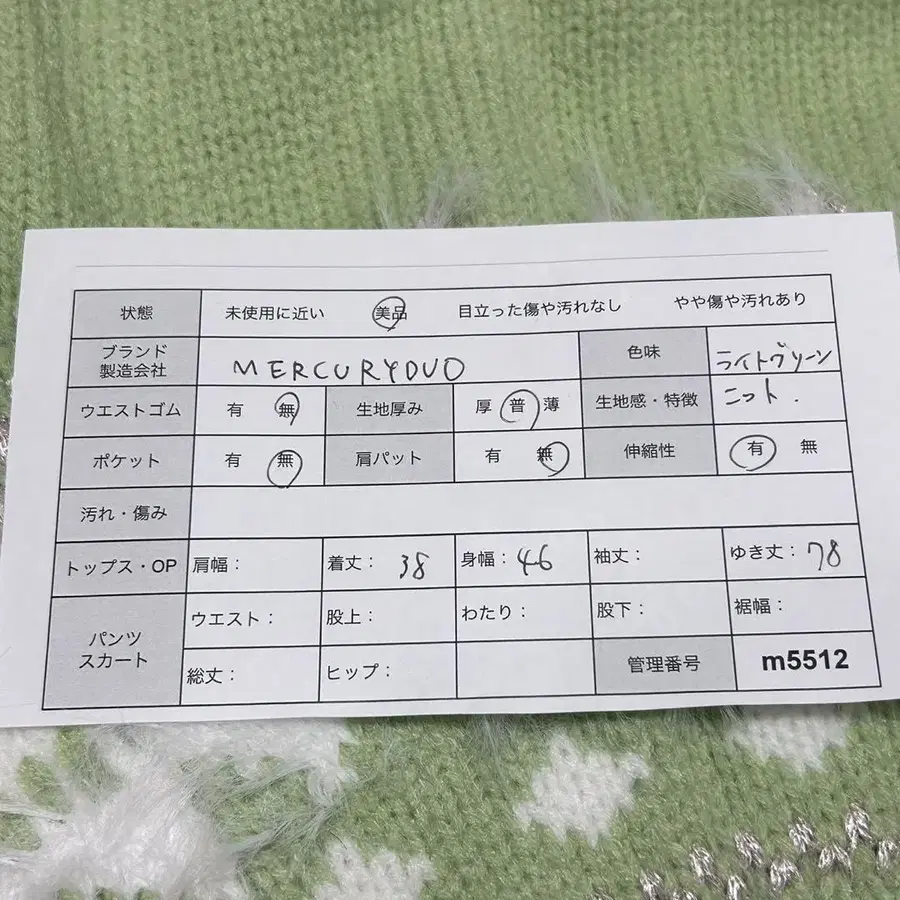 状態 未使用に近い 美品 目立った傷や汚れなし やや傷や汚れあり
ブランド
製造会社 MERCURYDUO 色味 ライトグリーン
ウエストゴム 有 無 生地厚み 厚 普 薄 生地感・特徴 ニット.
ポケット 有 無 肩パット 有 無 伸縮性 有 無
汚れ・傷み
トップス・OP 肩幅: 着丈: 38 身幅: 46 袖丈: ゆき丈: 78
パンツ
スカート ウエスト: 股上: わたり: 股下: 裾幅:
総丈: ヒップ: 管理番号 m5512